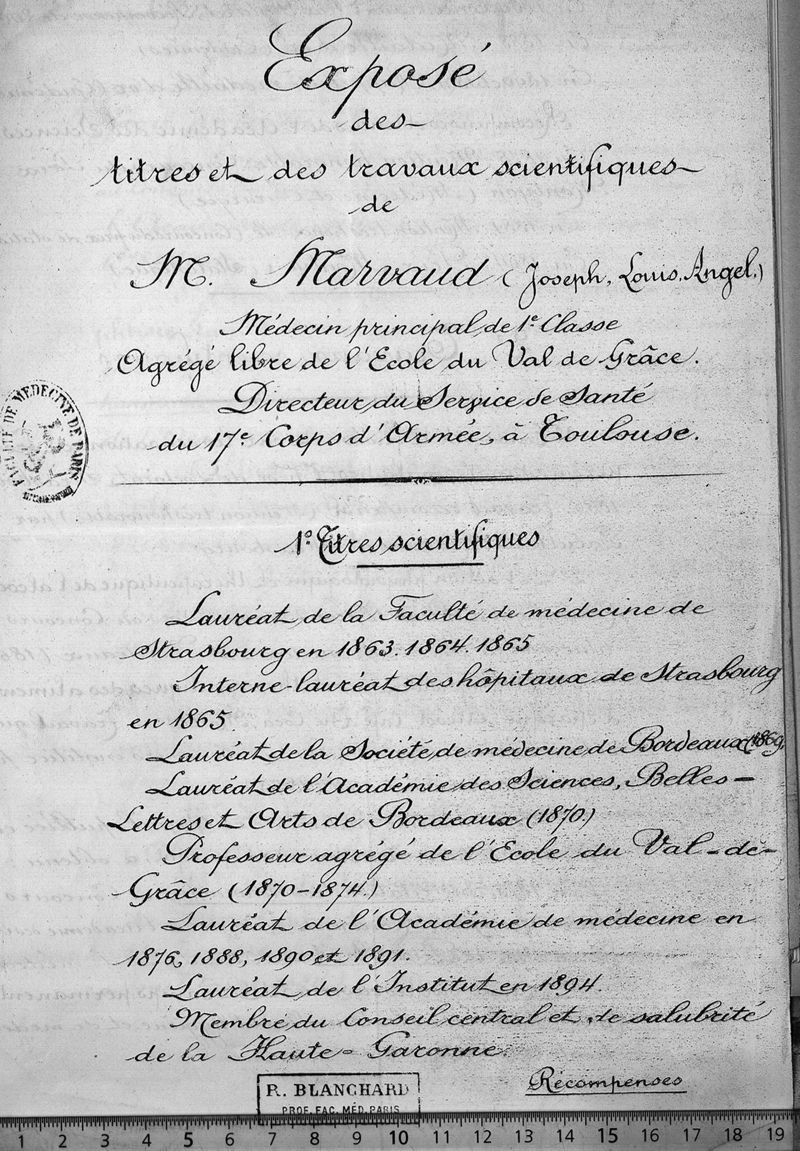 Exposé
des
titres et des travaux scientifiques
de
M. Marvaud (Joseph, Louis, Angel,)
Médecin principal de 1e Classe
Agrégé libre de l'Ecole du Val de Grâce.
Directeur du Service de Santé
du 17e Corps d'Armée, à Toulouse.
FACULTÉ DE MEDECINE DE PARIS
1° Titres scientifiques
Lauréat de la Faculté de médecine de
Strasbourg en 1863. 1864. 1865
Interne-lauréat des hôpitaux de Strasbourg
en 1865.
Lauréat de la Société de médecine de Bordeaux (1869)
Lauréat de l'Académie des Sciences, Belles-
Lettres et Arts de Bordeaux (1870.)
Professeur agrégé de l'Ecole du Val-de-
Grâce (1870-1874.)
Lauréat de l'Académie de médecine en
1876, 1888, 1890 et 1891.
Lauréat de l'Institut en 1894.
Membre du Conseil central et de salubrité
de la Haute-Garonne.
Récompenses
R. BLANCHARD
PROF. FAC. MÉD. PARIS
1 2 3 4 5 6 7 8 9 10 11 12 13 14 15 16 17 18 19